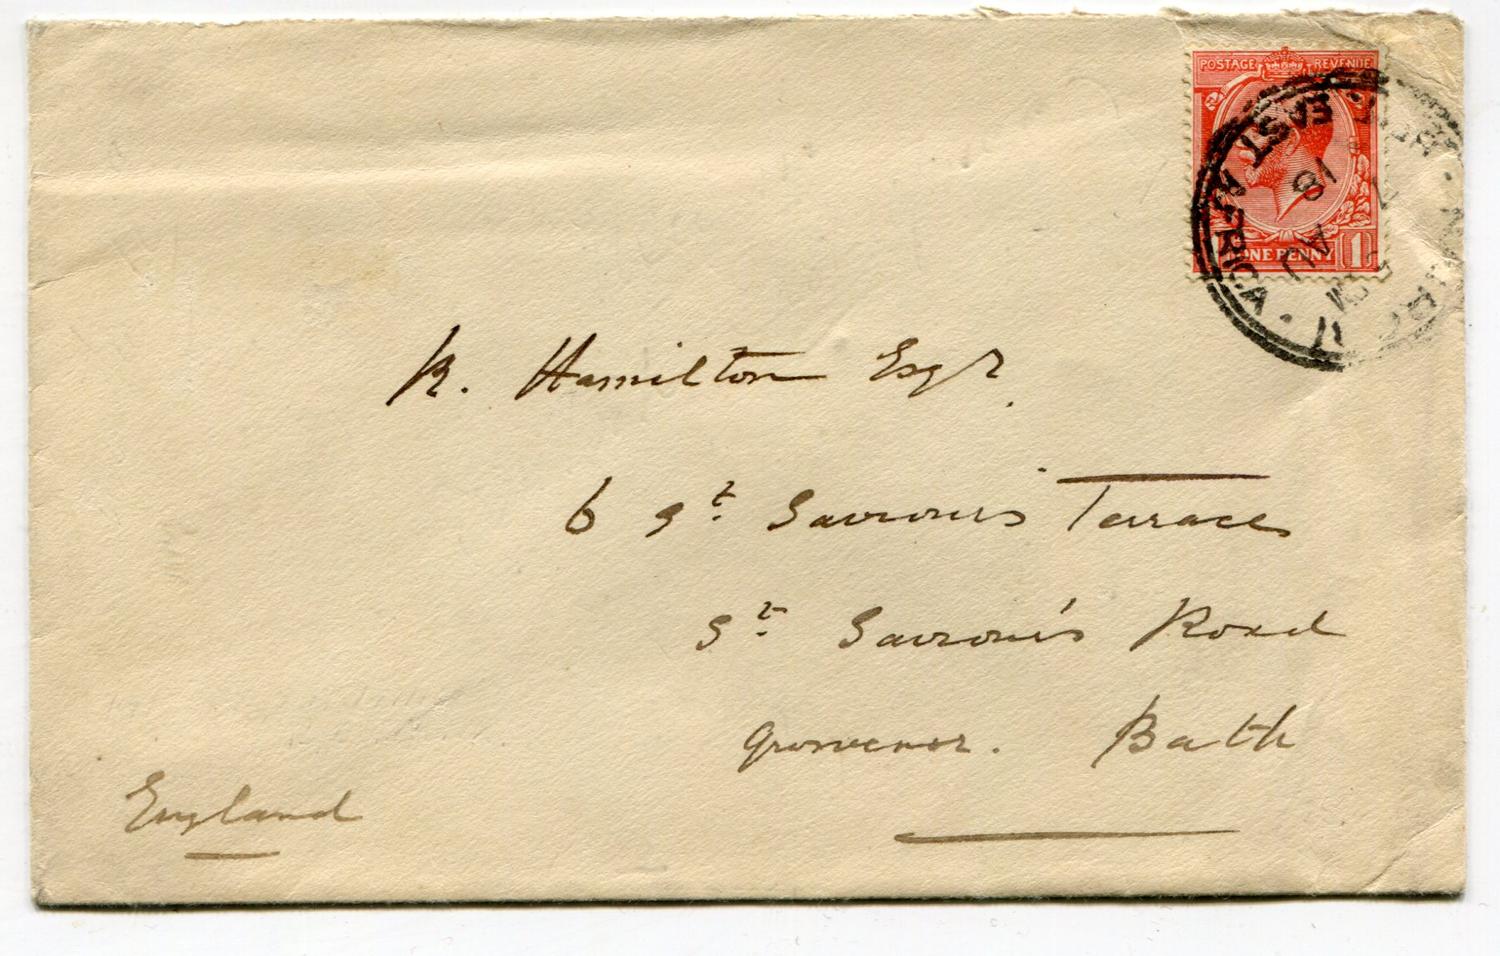 POSTAGE REVENUE
ONE PENNY 1
EAST AFRICA
18
AU
PM
R. Hamilton Esqr.
6 St. Saviours Terrace
St. Saviour's Road
Grosvenor. Bath
England